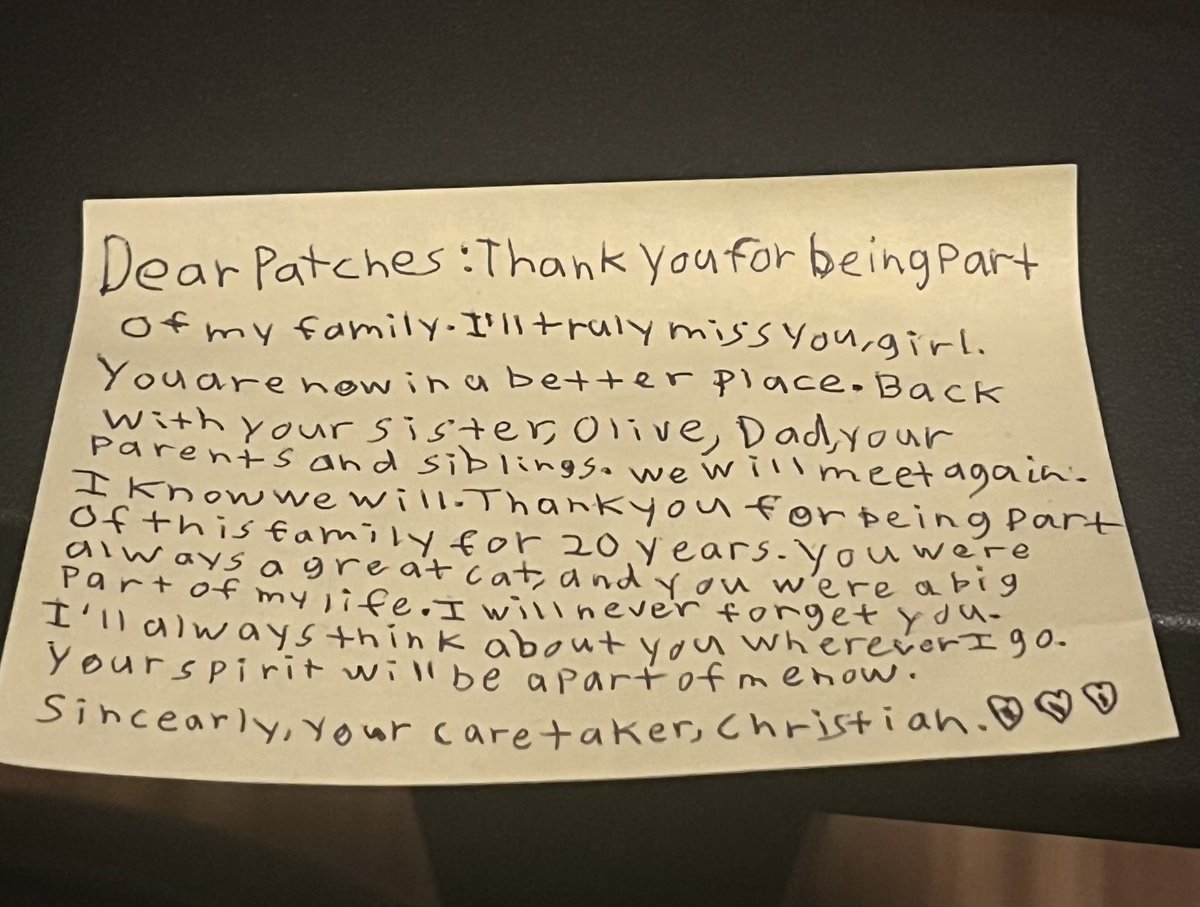 Dear Patches: Thank you for being part
of my family. I'll truly miss you, girl.
You are now in a better place. Back
with your sister, Olive, Dad, your
parents and siblings. we will meet again.
I know we will. Thank you for being part
of this family for 20 years. you were
always a great cat, and you were a big
part of my life. I will never forget you.
I'll always think about you wherever I go.
your spirit will be apart of me now.
Sincearly, your caretaker, Christian.